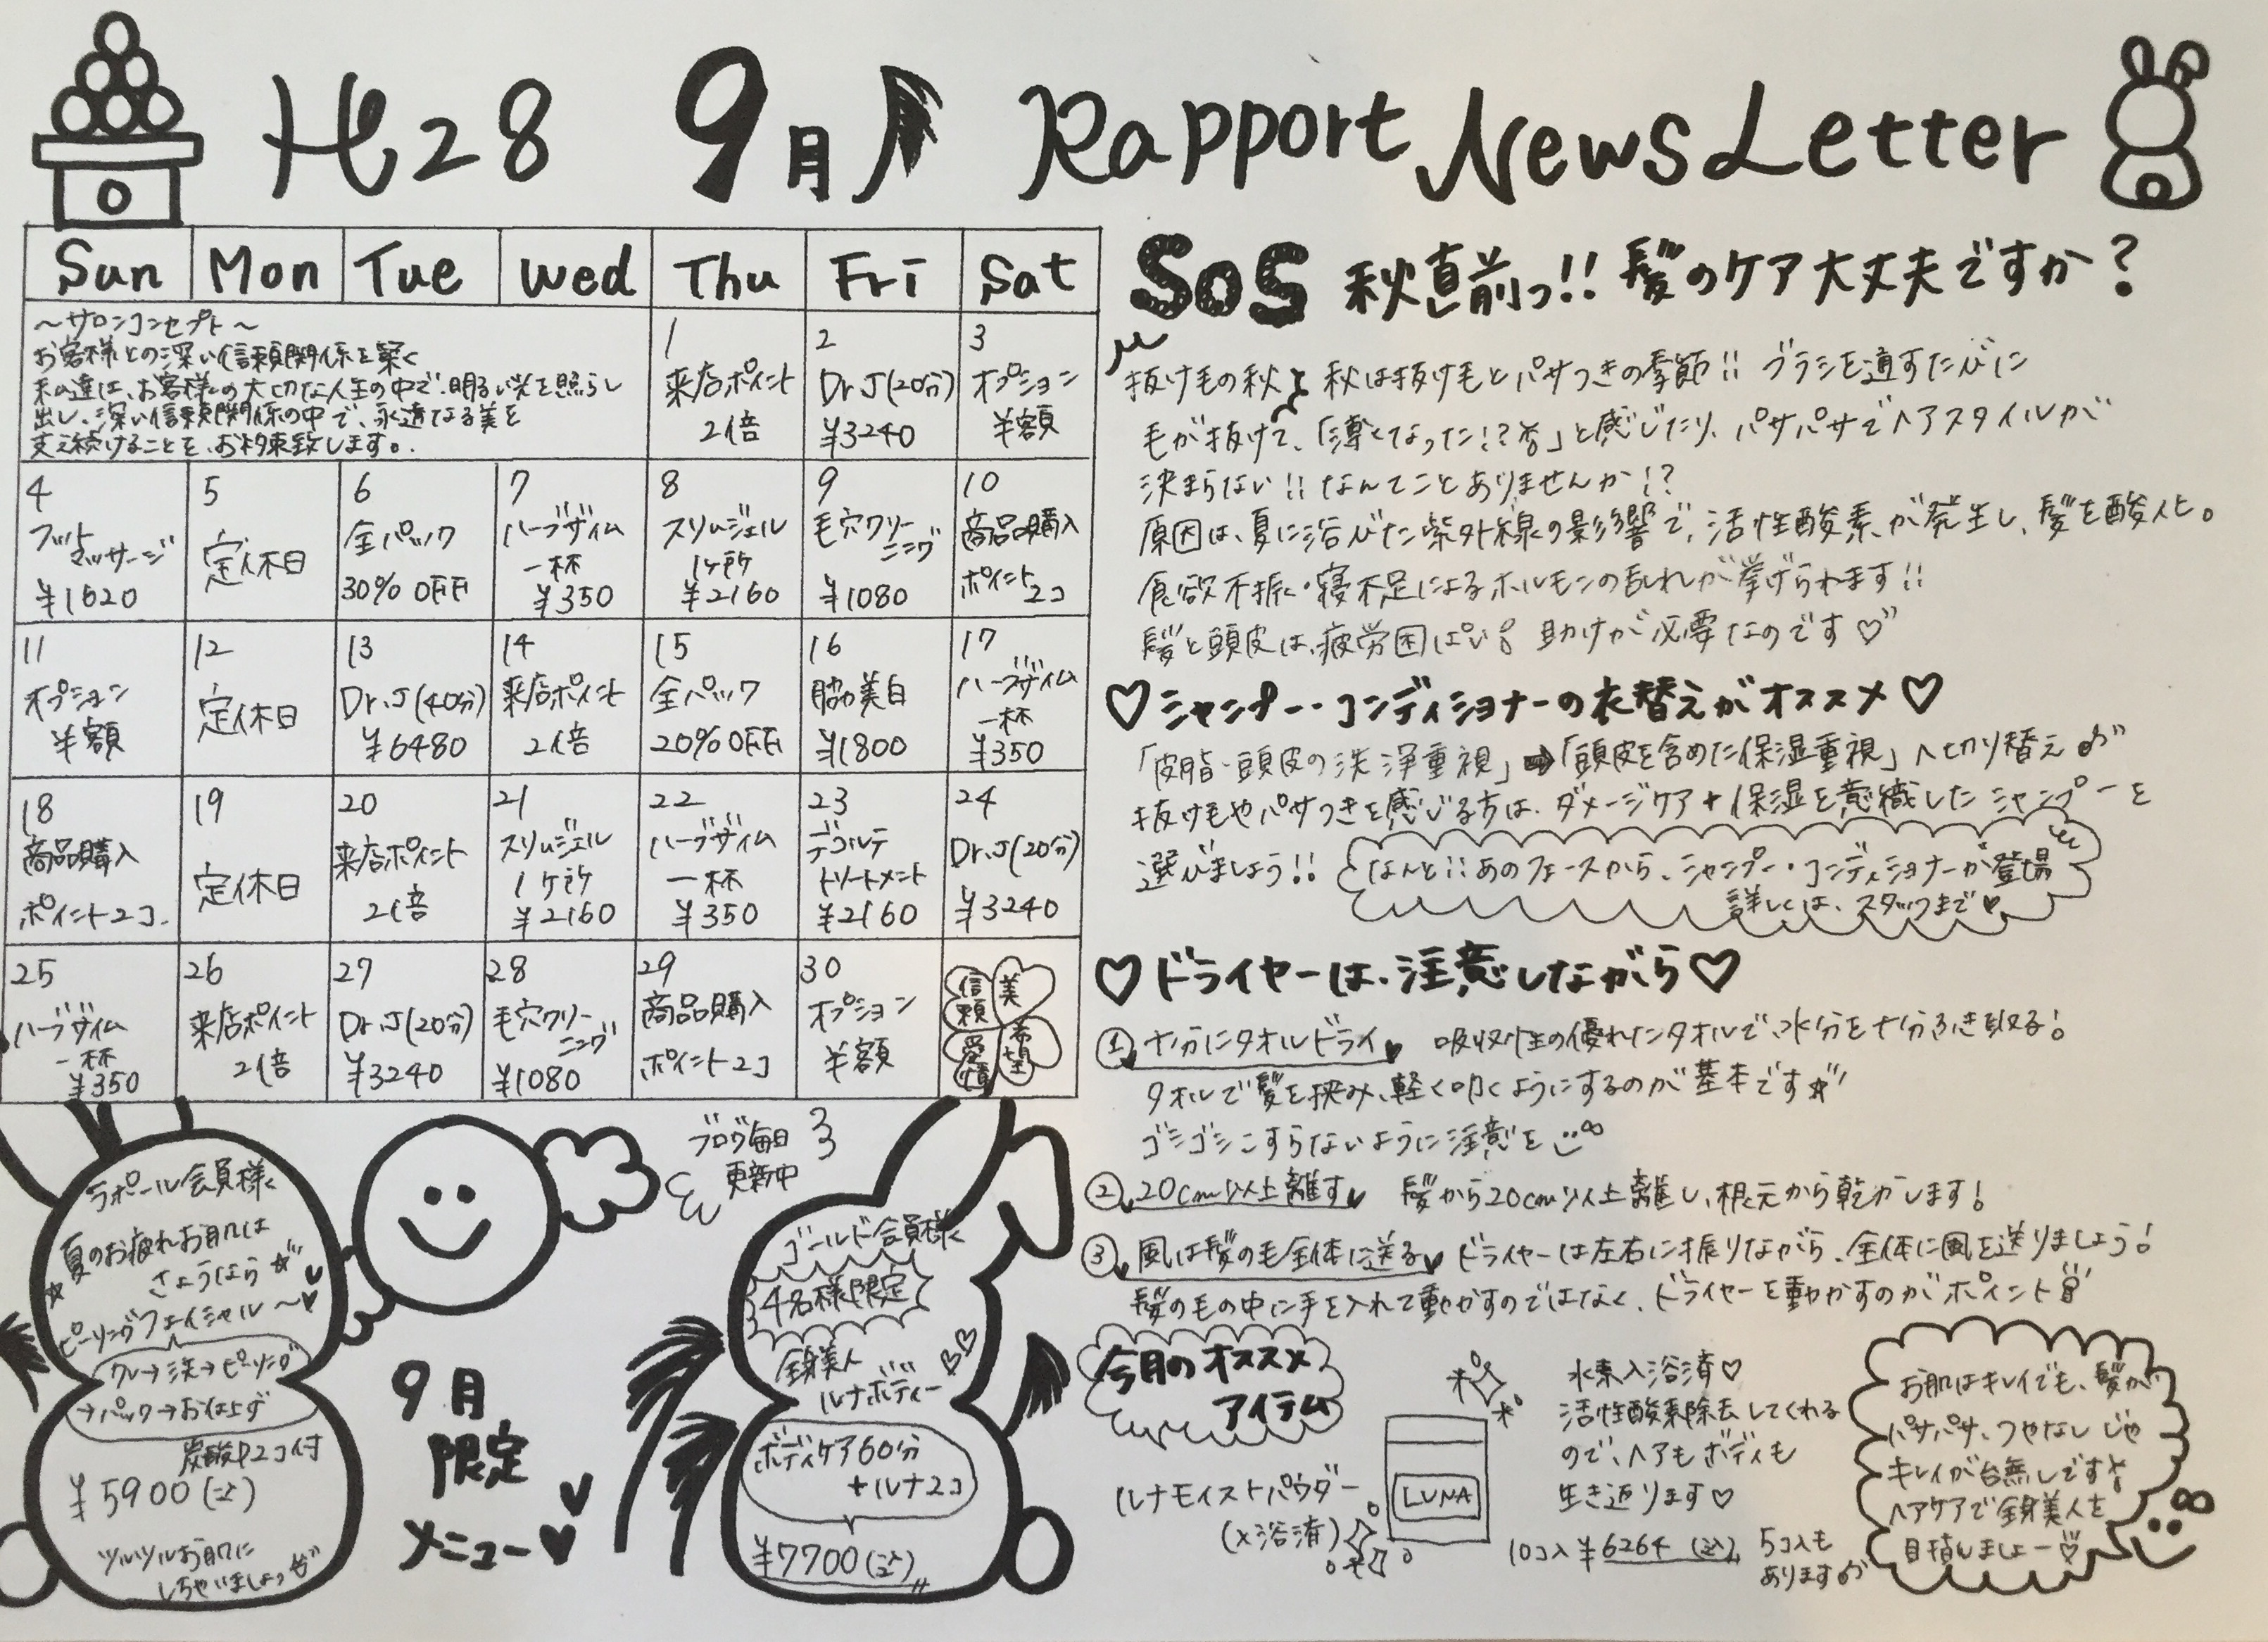 H28 9月 Rapport News Letter
Sun Mon Tue Wed Thu Fri Sat
〜サロンコンセプト〜
お客様との深い信頼関係を築く
私達は、お客様の大切な人生の中で、明るい光を照らし
出し、深い信頼関係の中で、永遠なる美を
支え続けることを、お約束致します。
1
来店ポイント
2倍
2
Dr.J(20分)
¥3240
3
オプション
半額
4
フット
マッサージ
¥1620
5
定休日
6
全パック
30% OFF
7
ハーブザイム
一杯
¥350
8
スリムジェル
1ヶ所
¥2160
9
毛穴クリー
ニング
¥1080
10
商品購入
ポイント
2コ
11
オプション
半額
12
定休日
13
Dr.J(40分)
¥6480
14
来店ポイント
2倍
15
全パック
20% OFF
16
脇美白
¥1800
17
ハーブザイム
一杯
¥350
18
商品購入
ポイント2コ
19
定休日
20
来店ポイント
2倍
21
スリムジェル
1ヶ所
¥2160
22
ハーブザイム
一杯
¥350
23
デコルテ
トリートメント
¥2160
24
Dr.J(20分)
¥3240
25
ハーブザイム
一杯
¥350
26
来店ポイント
2倍
27
Dr.J(20分)
¥3240
28
毛穴クリー
ニング
¥1080
29
商品購入
ポイント2コ
30
オプション
半額
信頼
美
愛情
希望
SOS 秋直前っ!! 髪のケア大丈夫ですか?
抜け毛の秋 秋は抜け毛とパサつきの季節!! ブラシを通すたびに
毛が抜けて、「薄くなった!?」と感じたり、パサパサでヘアスタイルが
決まらない!! なんてことありませんか!?
原因は、夏に浴びた紫外線の影響で、活性酸素が発生し、髪を酸化。
食欲不振・寝不足によるホルモンの乱れが挙げられます!!
髪と頭皮は、疲労困ぱい! 助けが必要なのです♡
♡シャンプー・コンディショナーの衣替えがオススメ♡
「皮脂・頭皮の洗浄重視」➡「頭皮を含めた保湿重視」へ切り替え♪
抜け毛やパサつきを感じる方は、ダメージケア+保湿を意識したシャンプーを
選びましょう!!
なんと!!あのフェースから、シャンプー・コンディショナーが登場
詳しくは、スタッフまで♥
♡ドライヤーは、注意しながら♡
① 十分にタオルドライ♥ 吸収性の優れたタオルで、水分を十分ふき取る!
タオルで髪を挟み、軽く叩くようにするのが基本です☆
ゴシゴシこすらないように注意を
② 20cm以上離す♥ 髪から20cm以上離し、根元から乾かします!
③ 風は髪の毛全体に送る♥ ドライヤーは左右に振りながら、全体に風を送りましょう!
髪の毛の中に手を入れて動かすのではなく、ドライヤーを動かすのがポイント
今月のオススメ
アイテム
ルナモイストパウダー
(入浴済)
LUNA
水素入浴済♡
活性酸素除去してくれる
ので、ヘアもボディも
生き返ります♡
10コ入 ¥6264 (込)
5コ入も
あります♪
お肌はキレイでも、髪が
パサパサ、つやなしじゃ
キレイが台無しです!
ヘアケアで全身美人を
目指しましょー♡
ブログ毎日
更新中
ラポール会員様
夏のお疲れお肌は
さようなら☆
ピーリングフェイシャル〜♥
クレ→洗→ピーリング
→パック→お仕上げ
炭酸中2コ付
¥5900(込)
ツルツルお肌に
しちゃいましょっ
9月
限定
メニュー♥
ゴールド会員様
4名様限定
全身美人
ルナボディー♡♡
ボディケア60分
+ルナ2コ
¥7700(込)